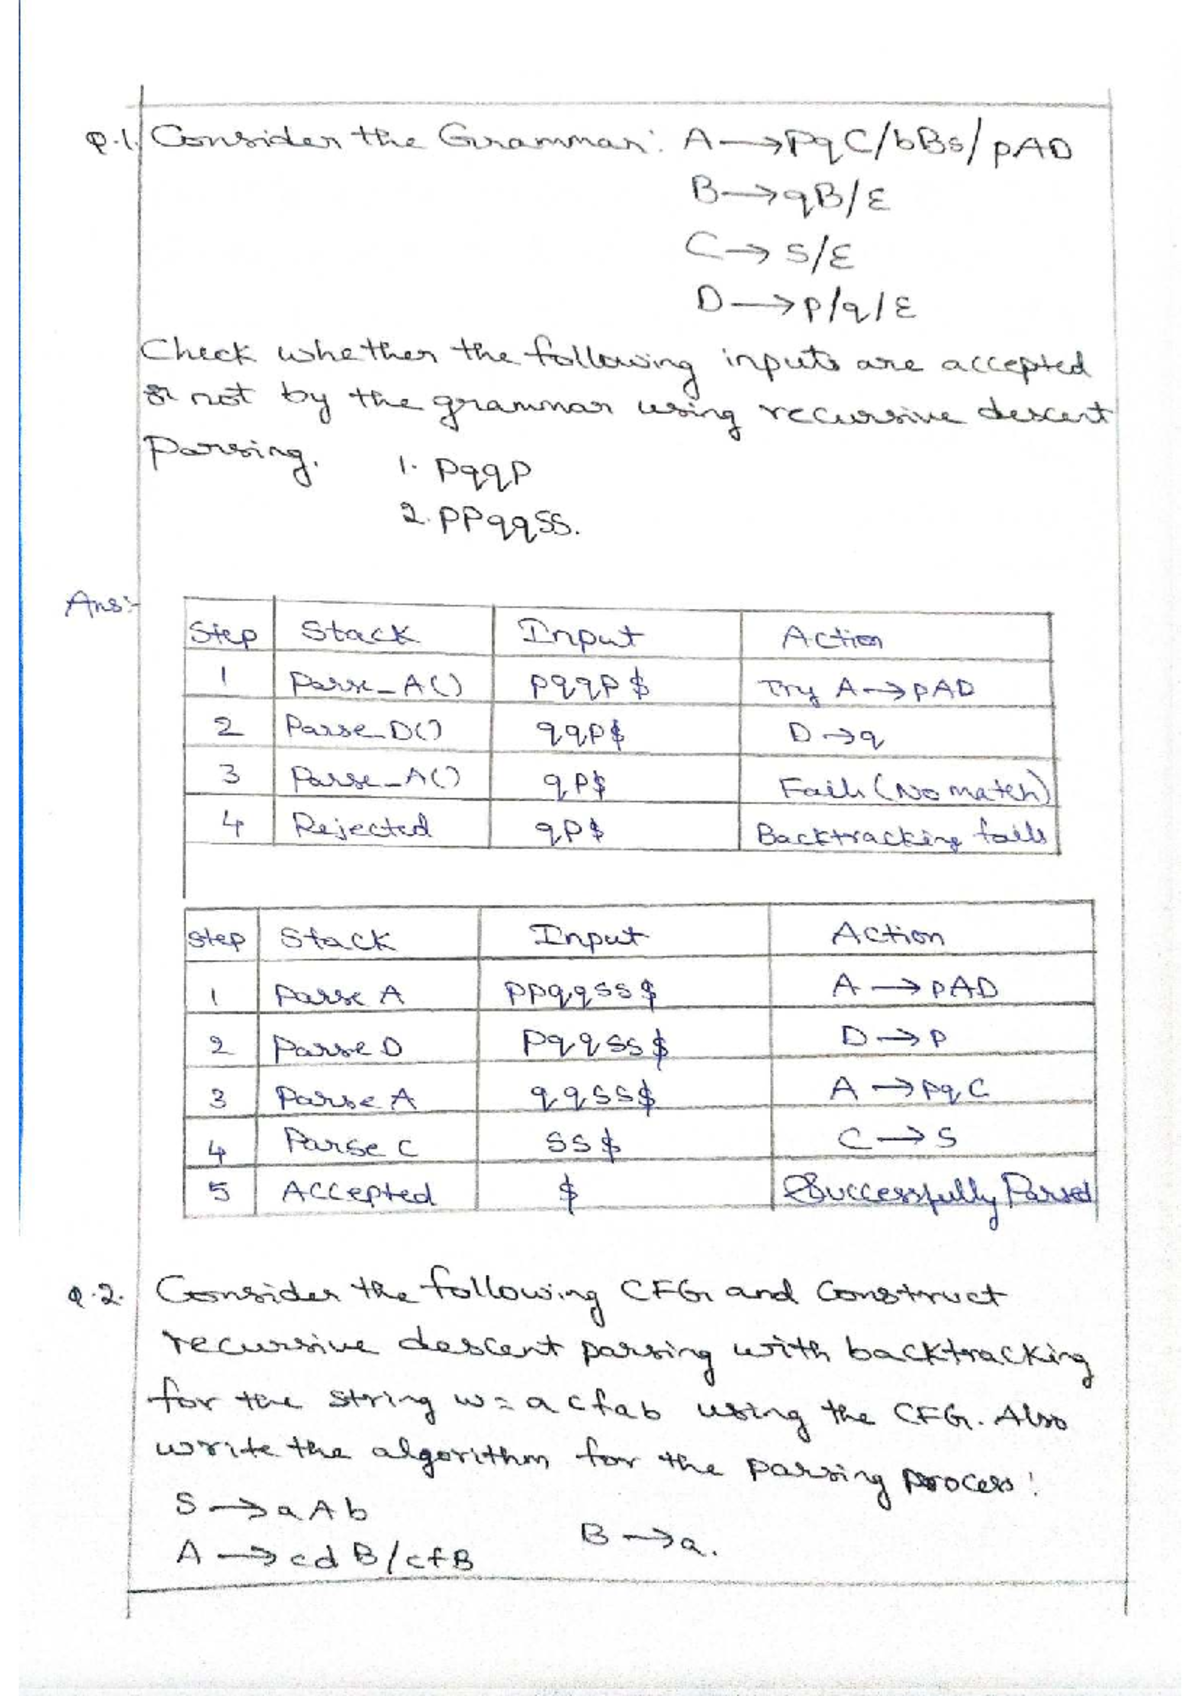 Q.1. Consider the Grammar: A→pqC/bBs/pAD
B→qB/ε
C→s/ε
D→p/q/ε
Check whether the following inputs are accepted
or not by the grammar using recursive descent
Parsing. 1. pqqp
2. ppqqss.
Ans:-
Step Stack Input Action
1 Parse_A() pqqp$ Try A→pAD
2 Parse_D() qqp$ D→q
3 Parse_A() qp$ Fail (No match)
4 Rejected qp$ Backtracking fails
Step Stack Input Action
1 Parse A ppqqss$ A→pAD
2 Parse D pqqss$ D→p
3 Parse A qqss$ A→pqC
4 Parse C ss$ C→s
5 Accepted $ Successfully Parsed
Q.2. Consider the following CFG and Construct
recursive descent parsing with backtracking
for the string w=acfab using the CFG. Also
write the algorithm for the parsing process!
S→aAb
A→cdB/cfB B→a.